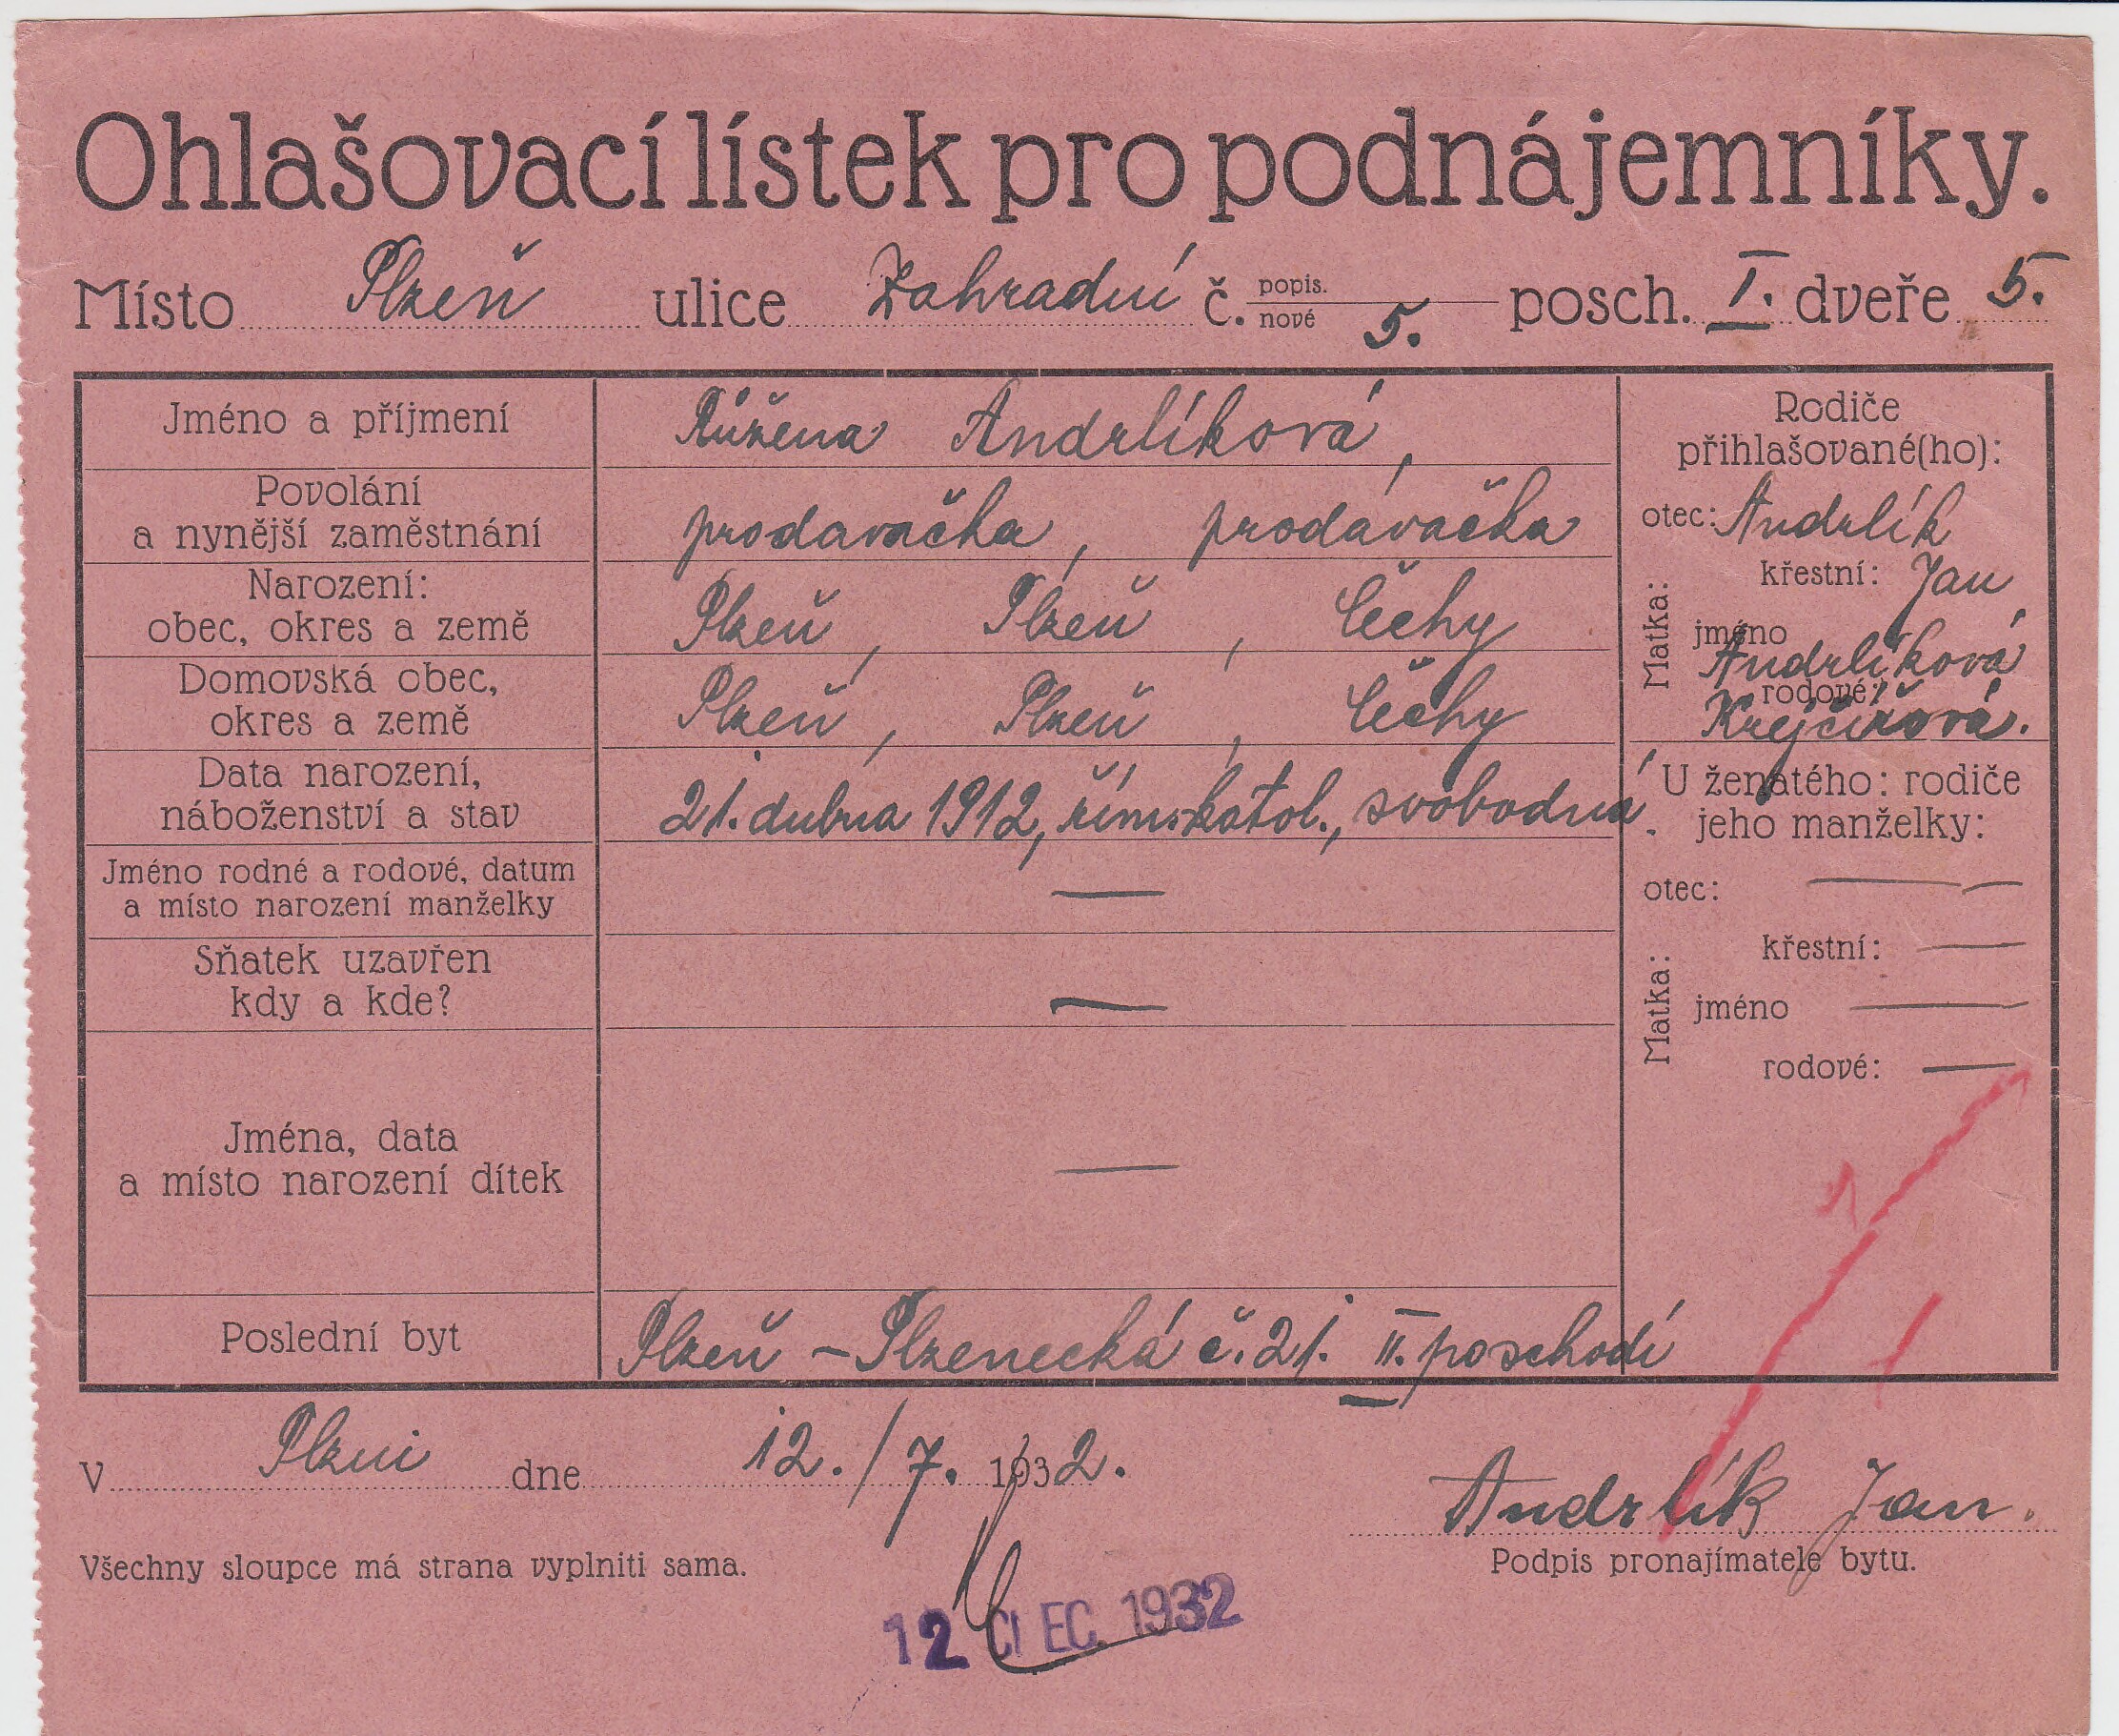 Ohlašovací lístek pro podnájemníky.
Místo Plzeň ulice Zahradní č. popis. nové 5. posch. I. dveře 5.
Jméno a příjmení
Růžena Andrlíková,
Povolání
a nynější zaměstnání
prodavačka, prodávačka
Narození:
obec, okres a země
Plzeň, Plzeň, Čechy
Domovská obec,
okres a země
Plzeň, Plzeň, Čechy
Data narození,
náboženství a stav
21. dubna 1912, řím.katol., svobodná.
Jméno rodné a rodové, datum
a místo narození manželky
—
Sňatek uzavřen
kdy a kde?
—
Jména, data
a místo narození dítek
—
Poslední byt
Plzeň – Plzenecká č. 21. II. poschodí
Rodiče
přihlašované(ho):
otec: Andrlík
křestní: Jan
Matka:
jméno
Andrlíková
rodové:
Krejčířová.
U ženatého: rodiče
jeho manželky:
otec: — —
křestní: —
Matka:
jméno —
rodové: —
V Plzni dne 12./7. 1932.
Andrlík Jan.
Všechny sloupce má strana vyplniti sama.
Podpis pronajímatele bytu.
12 ČEC. 1932